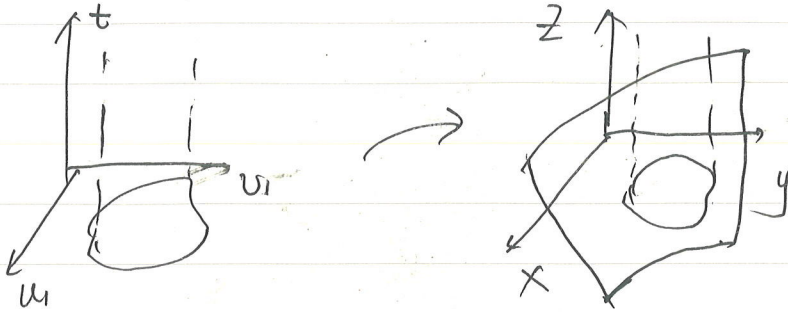 t
u₁
u₁
Z
y
x